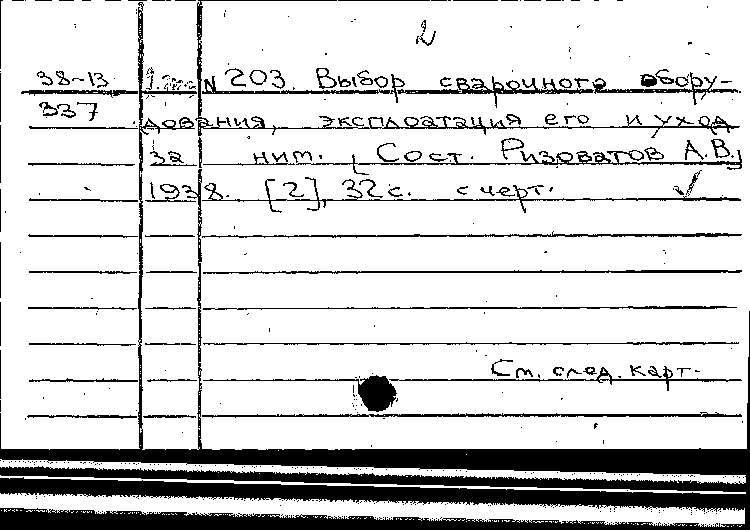 2
38-13 N 203. Выбор сварочного обору-
337 дования, эксплоатация его и уход
за ним. [Сост. Ризоватов А.В.]
1938. [2], 32 с. с черт. ✓
См. след. карт.